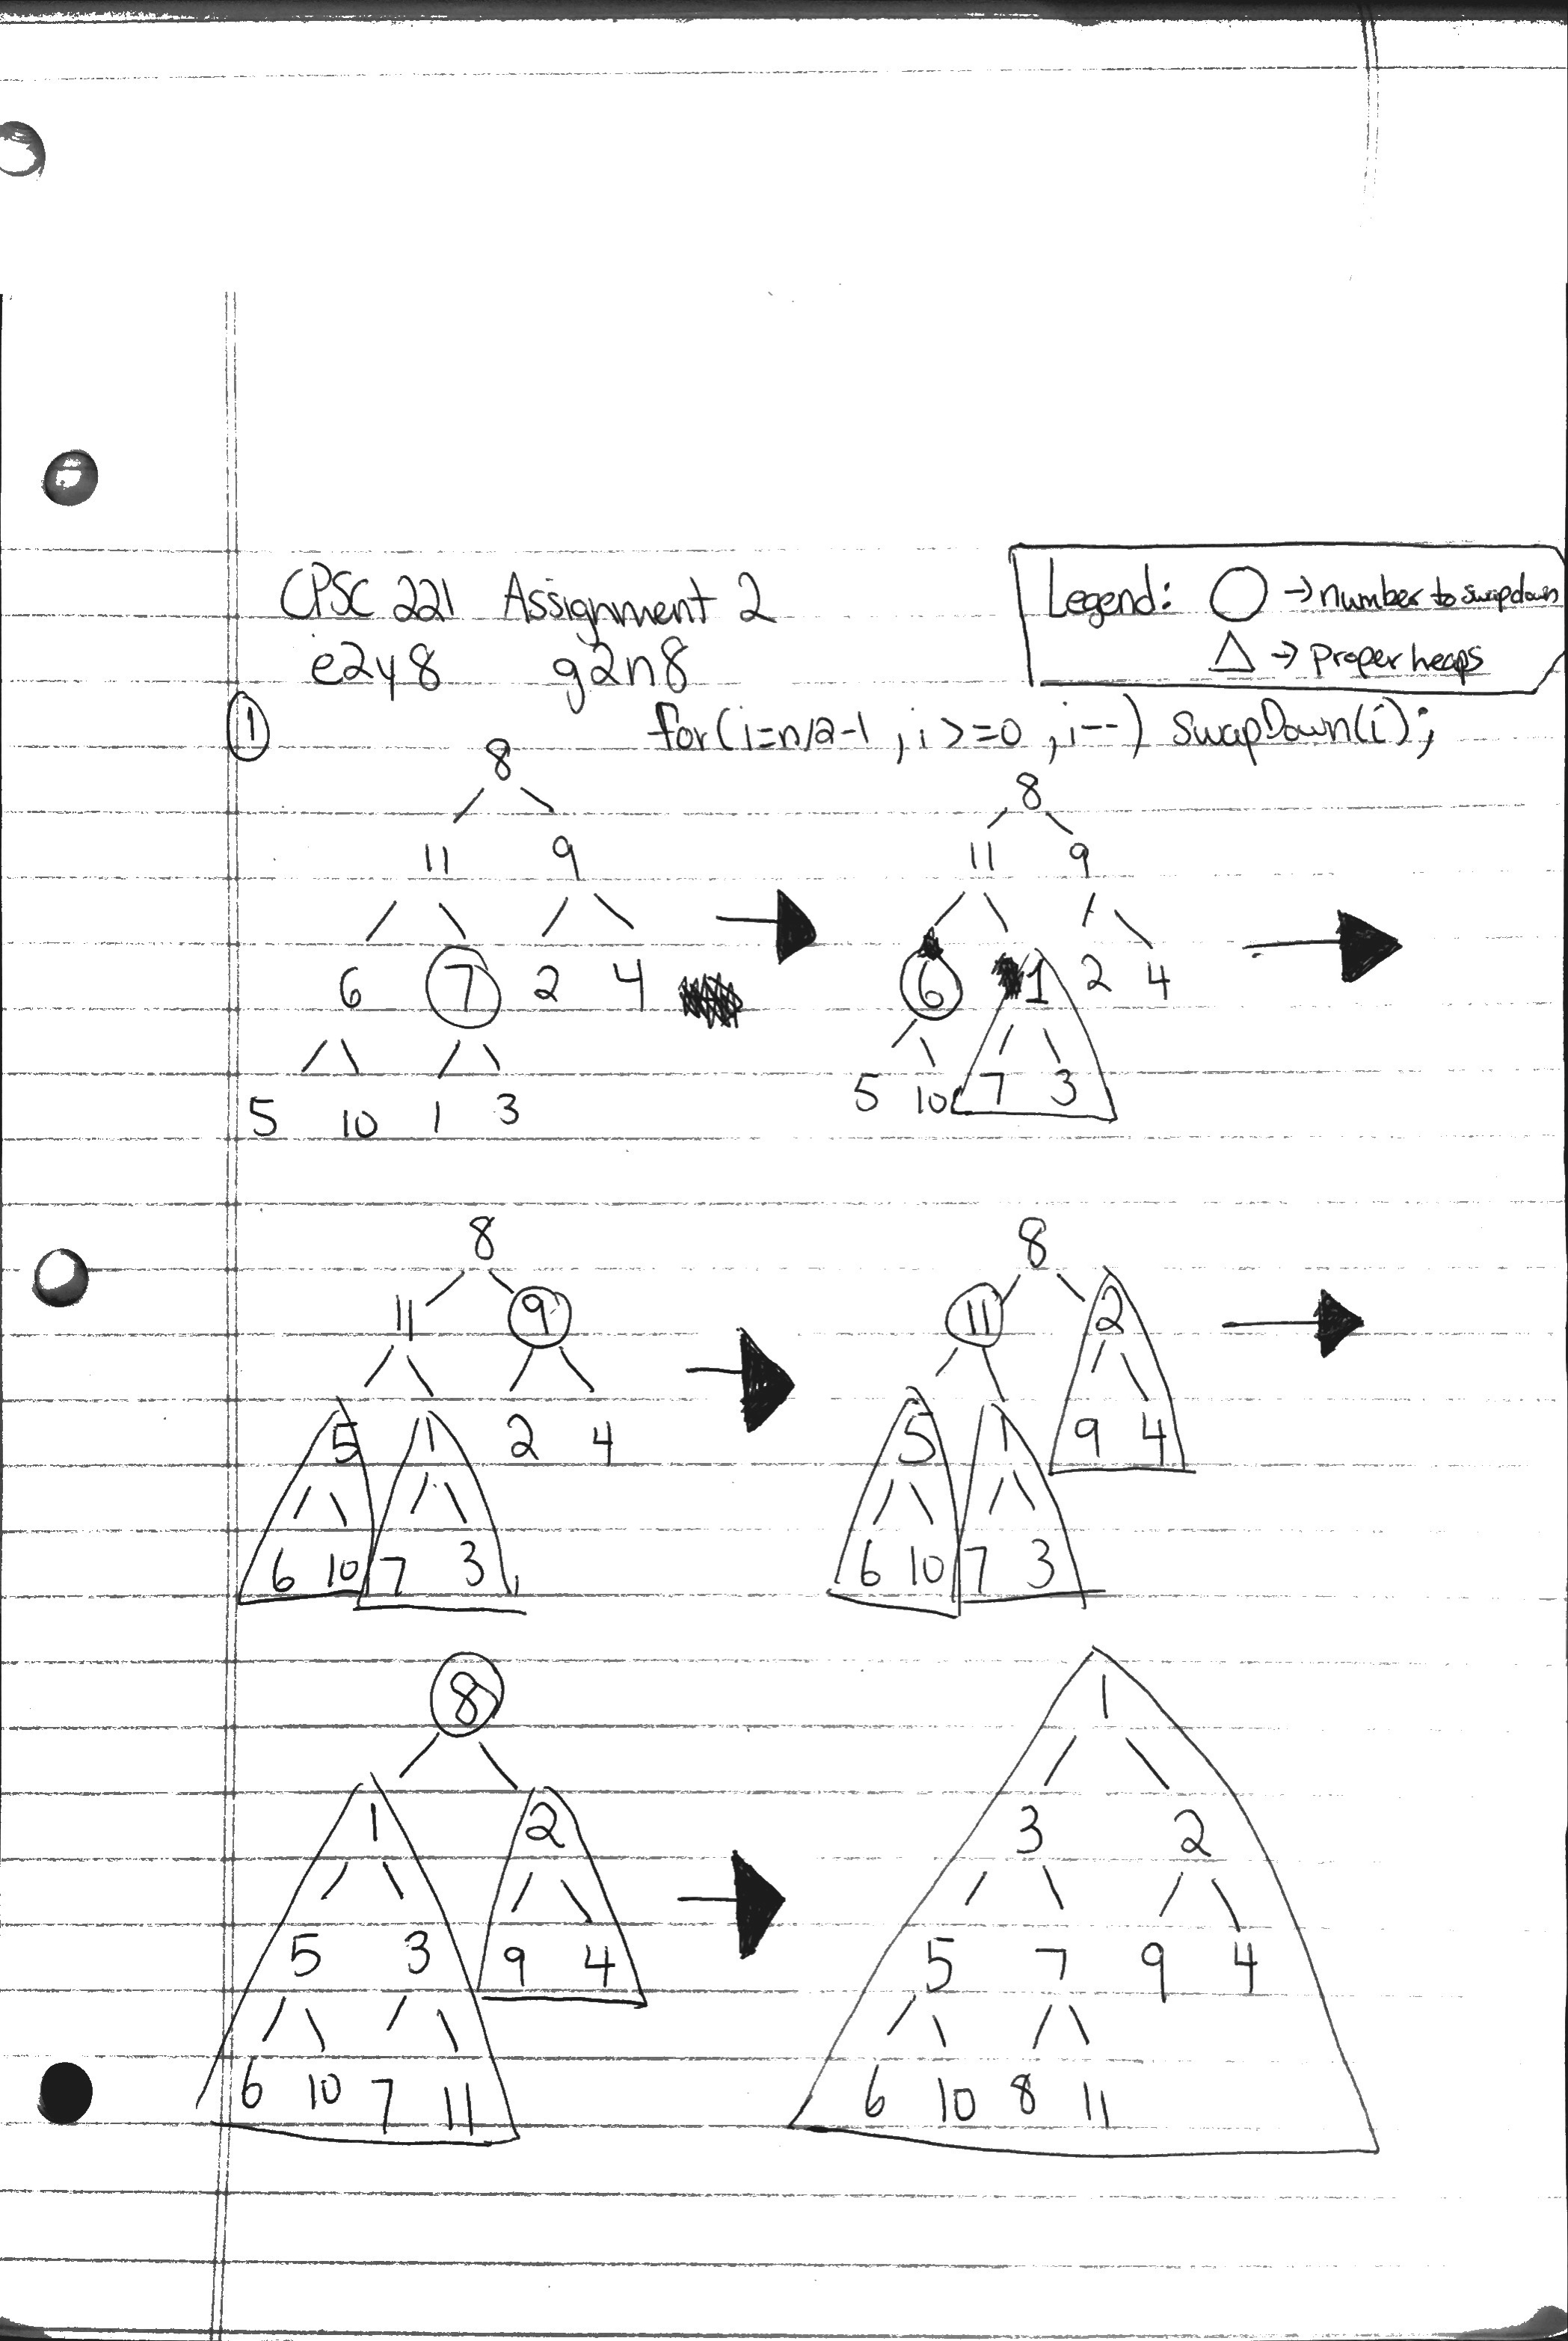 CPSC 221 Assignment 2
e2y8 g2n8
Legend: ○ → number to swapdown
△ → Proper heaps
① for(i=n/2-1, i>=0, i--) swapDown(i);
8
11 9
6 7 2 4
5 10 1 3
8
11 9
6 1 2 4
5 10 7 3
8
11 9
5 1 2 4
6 10 7 3
8
11 2
5 1 9 4
6 10 7 3
8
1 2
5 3 9 4
6 10 7 11
1
3 2
5 7 9 4
6 10 8 11